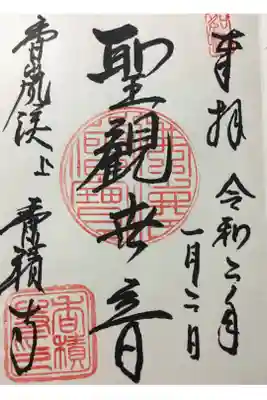 奉拝 令和二年
一月二日
聖觀世音
香嵐渓上 香積寺
香積